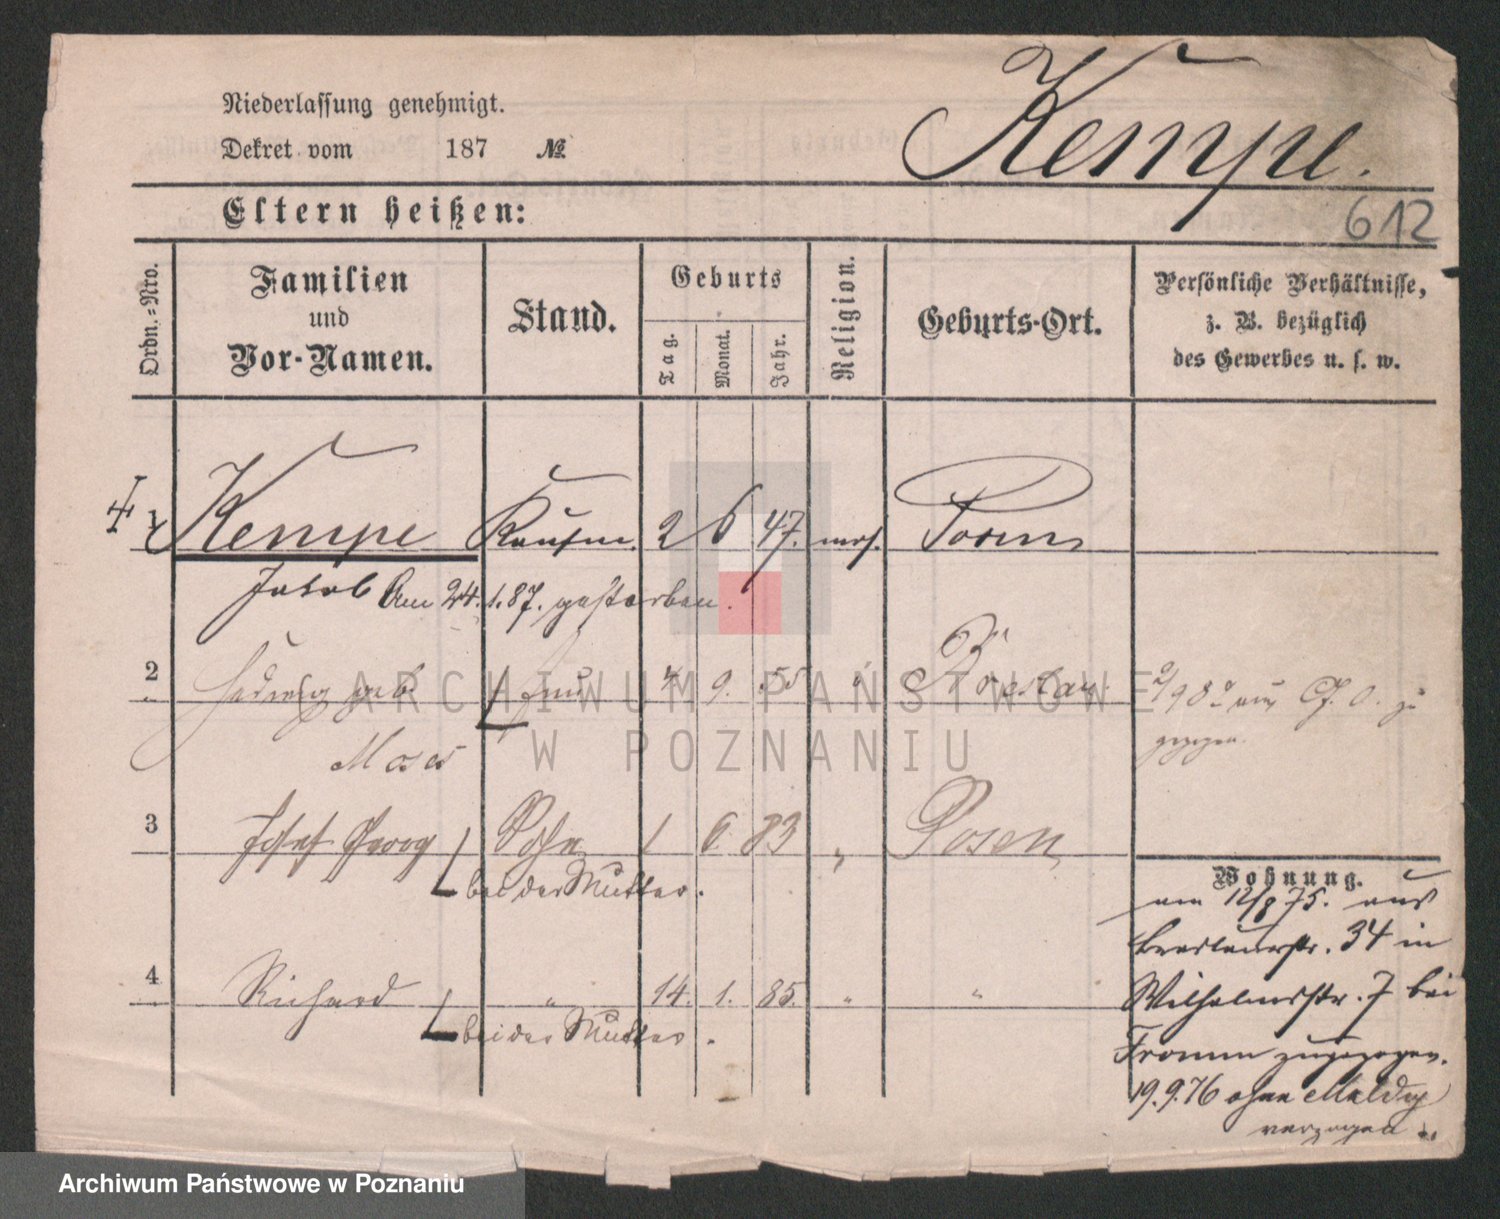 Niederlassung genehmigt.
Dekret vom 187 №
Kempe.
Eltern heißen:
612
Ordn.-Nro.
Familien
und
Vor-Namen.
Stand.
Geburts
Tag.
Monat.
Jahr.
Religion.
Geburts-Ort.
Persönliche Verhältnisse,
z. B. bezüglich
des Gewerbes u. s. w.
1 Kempe Kaufm. 2 6 47. mos. Posen
Jakob Am 24.1.87. gestorben.
2 Hedwig geb. Frau 4. 9. 55 " Breslau
Moses
gezogen.
3 Josef Georg Sohn 1 6. 83 " Posen
bei der Mutter.
4 Richard " 14. 1. 85. " "
bei der Mutter.
Wohnung.
am 12/8 75. aus
Breslauerstr. 34 in
Wilhelmstr. 7 bei
Fromm zugezogen.
19.9.76 ohne Meldug
verzogen
ARCHIWUM PAŃSTWOWE
W POZNANIU
Archiwum Państwowe w Poznaniu